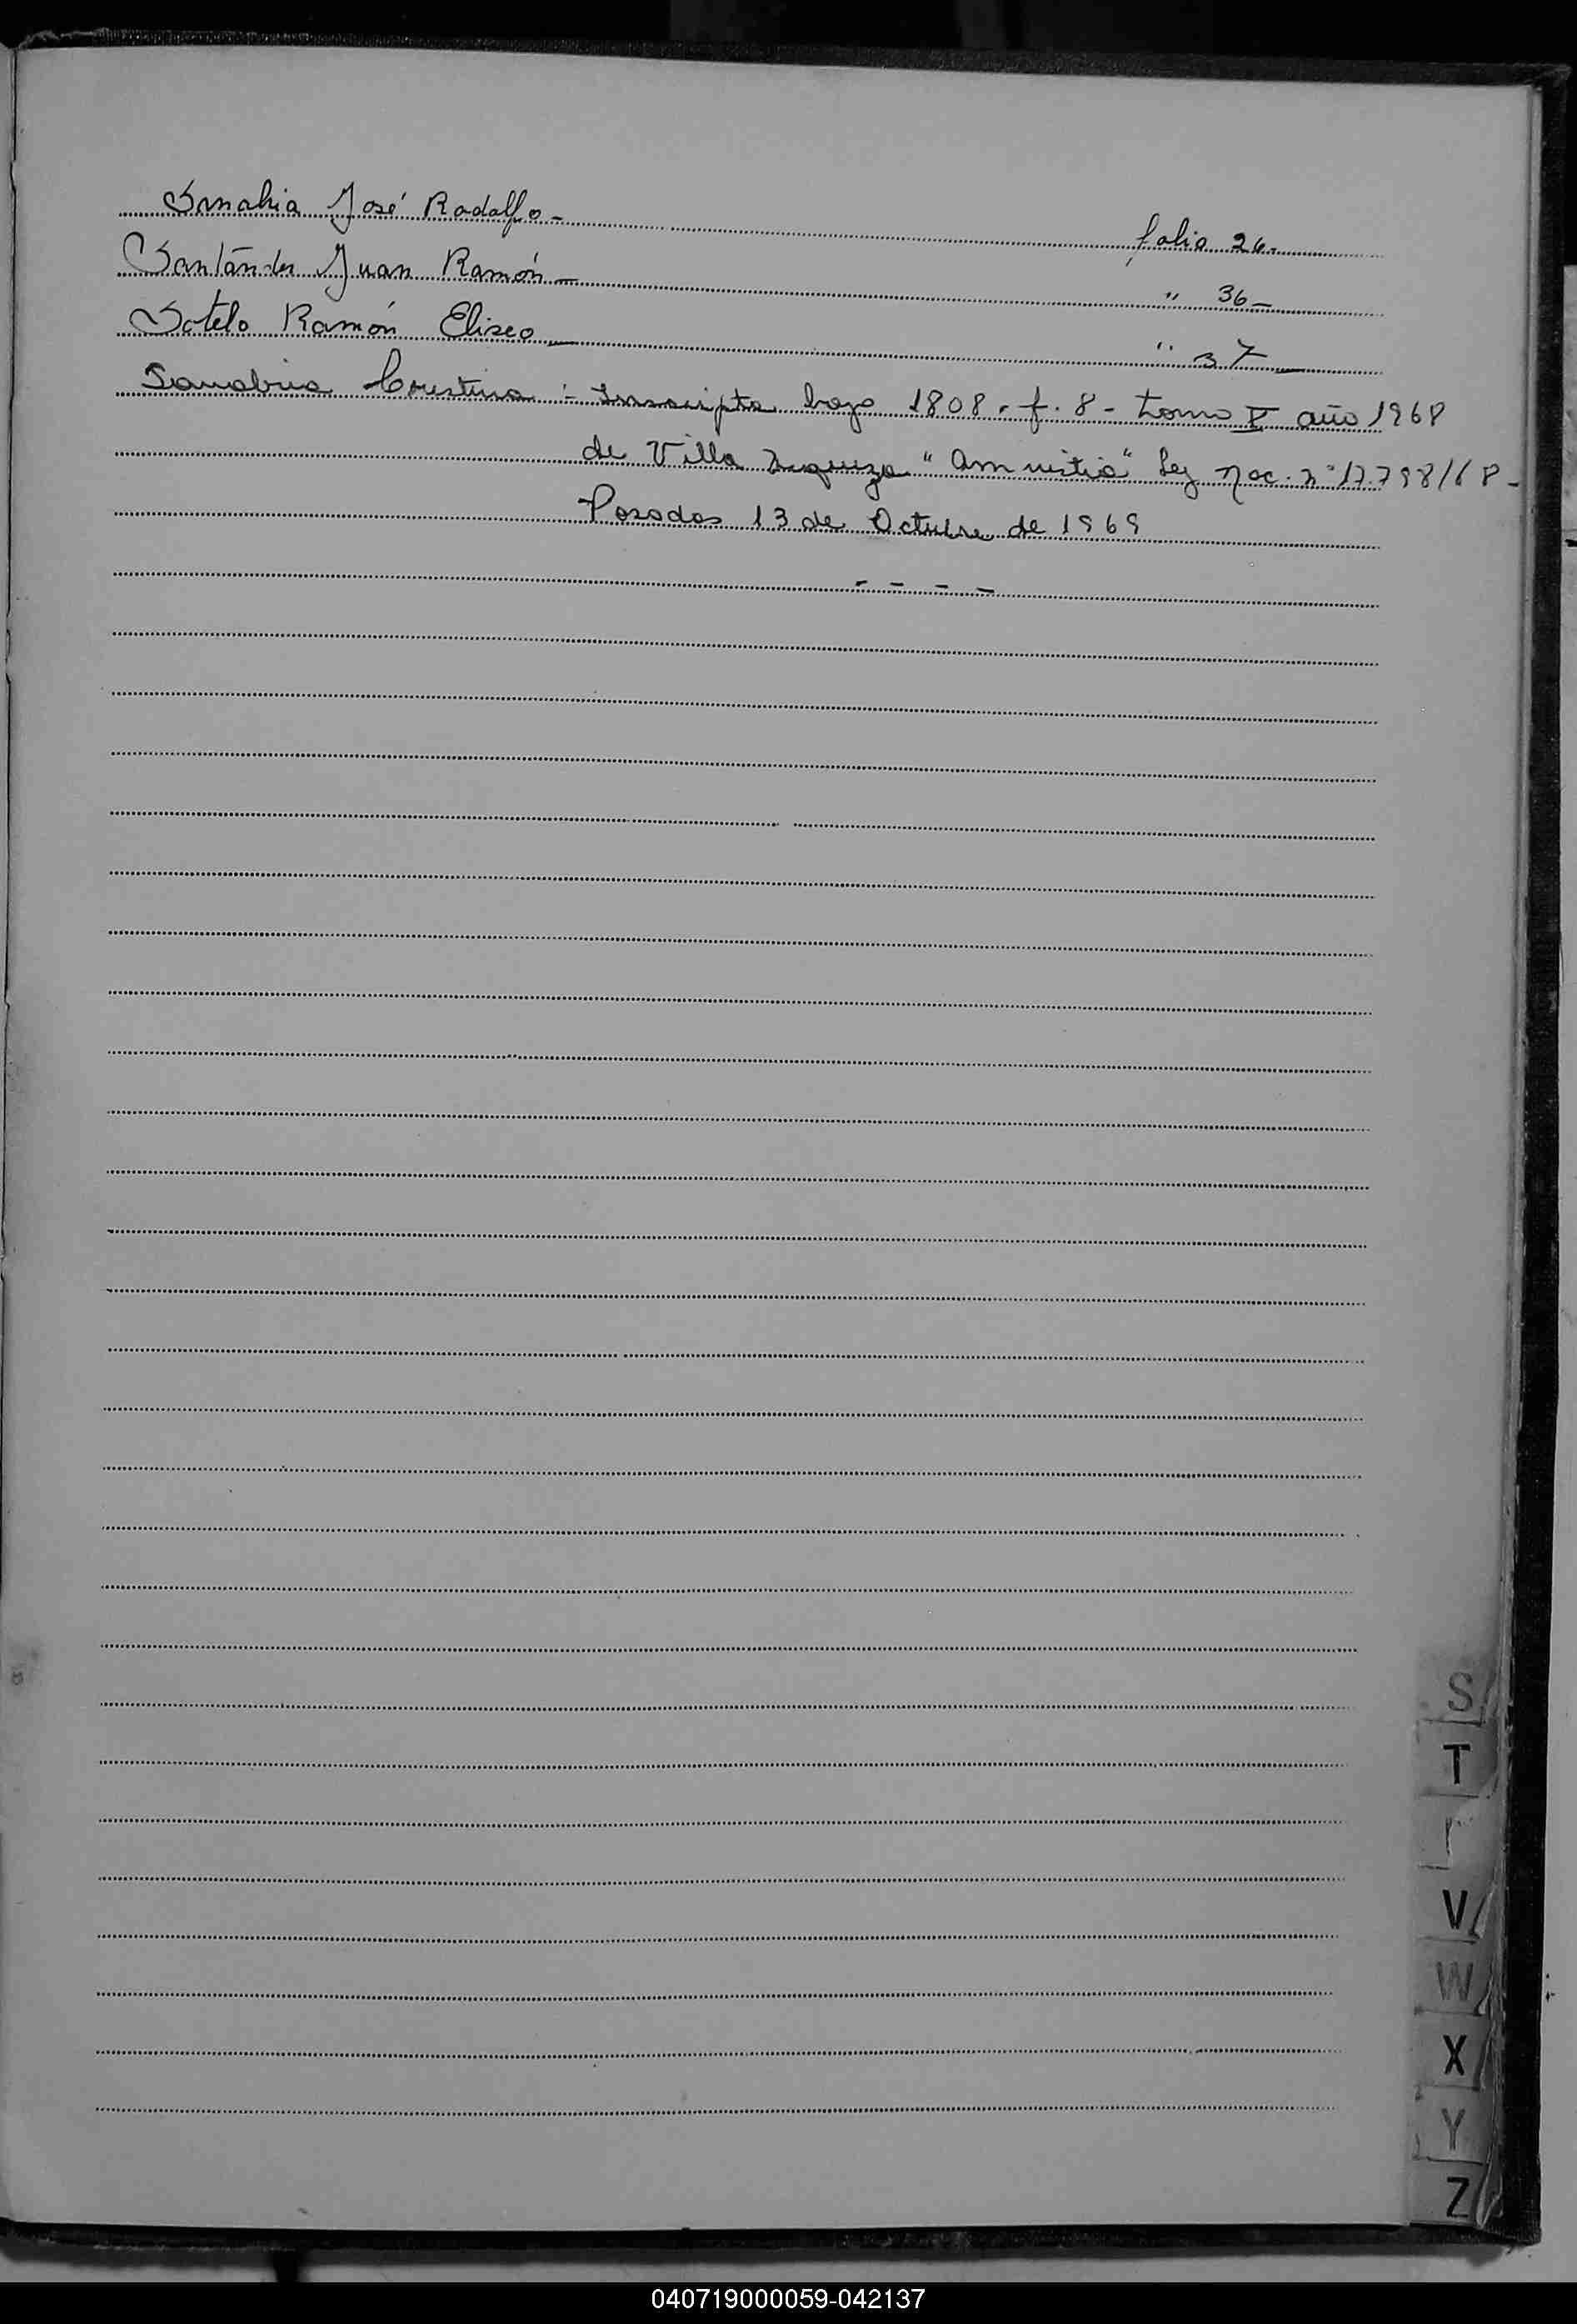 José Rodolfo - folio 26-
Santánder Juan Ramón - " 36-
Sotelo Ramón Eliseo - " 37-
Sanabria Cristina :- Inscripta bajo 1808 - f. 8 - tomo V año 1968
de Villa "Amnistia" Ley nac. nº 17.798/68-
Posadas 13 de Octubre de 1969
- - - -
S
T
V
W
X
Y
Z
040719000059-042137